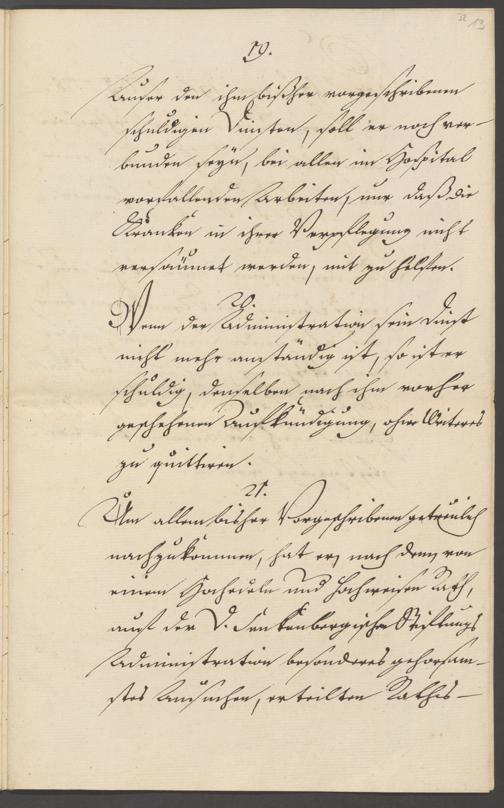 19.
Auser den ihm bißher vorgeschribenen
schuldigen Dinsten, soll er noch ver-
bunden seyn, bei allen im Hospital
vorfallenden Arbeiten, nur daß die
Kranken in ihrer Verpflegung nicht
versäumet werden, mit zu helffen.
20.
Wenn der Administration sein Dinst
nicht mehr anständig ist, so ist er
schuldig, denselben nach ihm vorher
geschehenen Aufkündigung, ohne Weiteres
zu quittiren.
21.
Um allem bisher Vorgeschribenen getreulich
nachzukommen, hat er, nach dem, von
einem Hochedeln und Hochweisen Rath,
auf der D. Senkenbergische Stiftungs
Administration besonderes gehorsam-
stes Ansuchen, erteilten Raths-